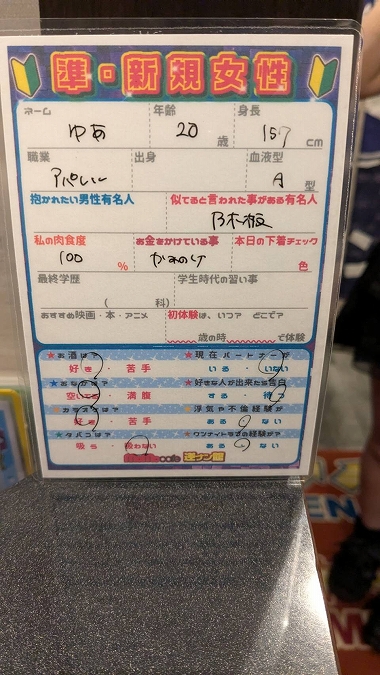 準・新規女性
ネーム 年齢 身長
ゆあ 20 歳 157 cm
職業 出身 血液型
アパレル A 型
抱かれたい男性有名人 似てると言われた事がある有名人
乃木坂
私の肉食度 お金をかけている事 本日の下着チェック
100 % かみのけ 色
最終学歴 学生時代の習い事
( 科)
おすすめ映画・本・アニメ 初体験は、いつ? どこで?
歳の時 で体験
★お酒は? ★現在パートナーが
好き・苦手 いる・いない
★おなかは? ★好きな人が出来たら告白
空いてる・満腹 する・待つ
★カラオケは? ★浮気や不倫経験が
好き・苦手 ある・ない
★タバコは? ★ワンナイトラブの経験が?
吸う・吸わない ある・ない